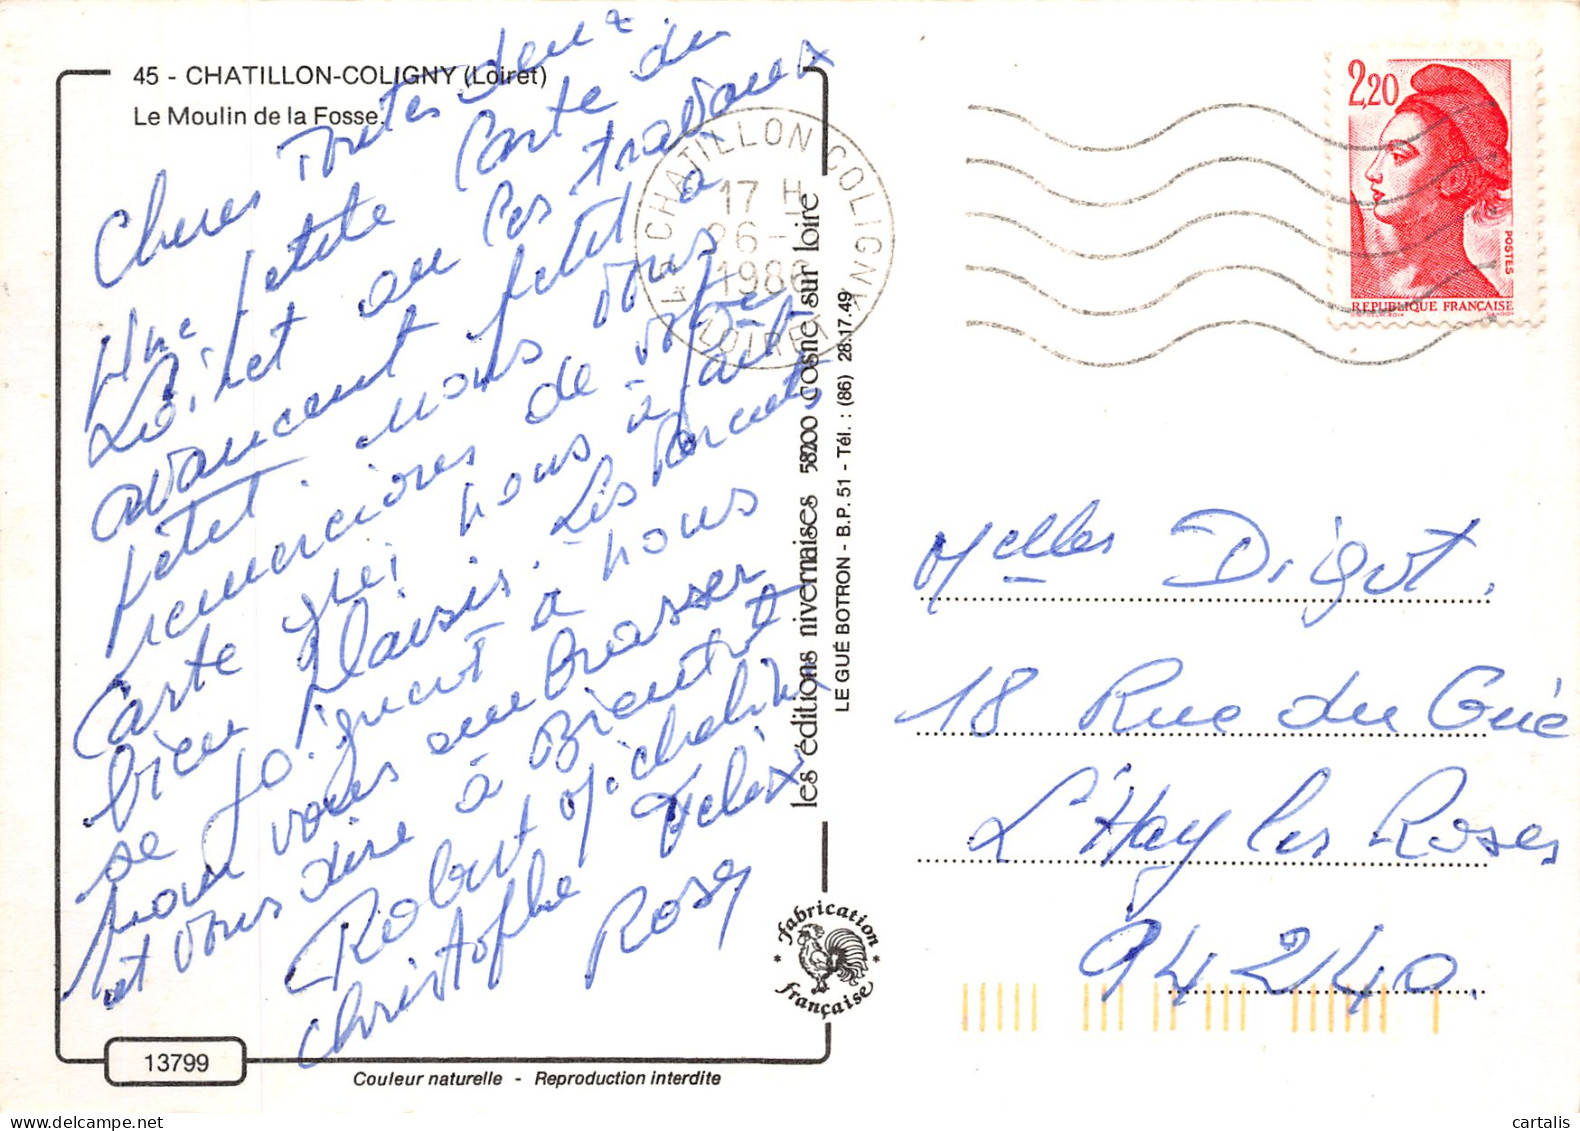 45 - CHATILLON-COLIGNY (Loiret)
Le Moulin de la Fosse.
Cheres Toutes deux
Une petite Carte du
Loiret ou les travaux
avancent petit à
petit. nous vous
remercions de votre
Carte qui nous à fait
bien plaisir. Les Parents
se joignent à nous
pour vous embrasser
et vous dire à Bientôt
Robert Micheline
Christophe Felix
Rosy
13799
Couleur naturelle - Reproduction interdite
45 CHATILLON COLIGNY
17 H
26 -
1986
LOIRET
les éditions nivernaises 58200 cosne sur loire
LE GUÉ BOTRON - B.P. 51 - Tél. : (86) 28.17.49
fabrication
française
2,20
POSTES
REPUBLIQUE FRANÇAISE
Melles Digot.
18 Rue du Gué
L'Hay les Roses
94240.
cartalis